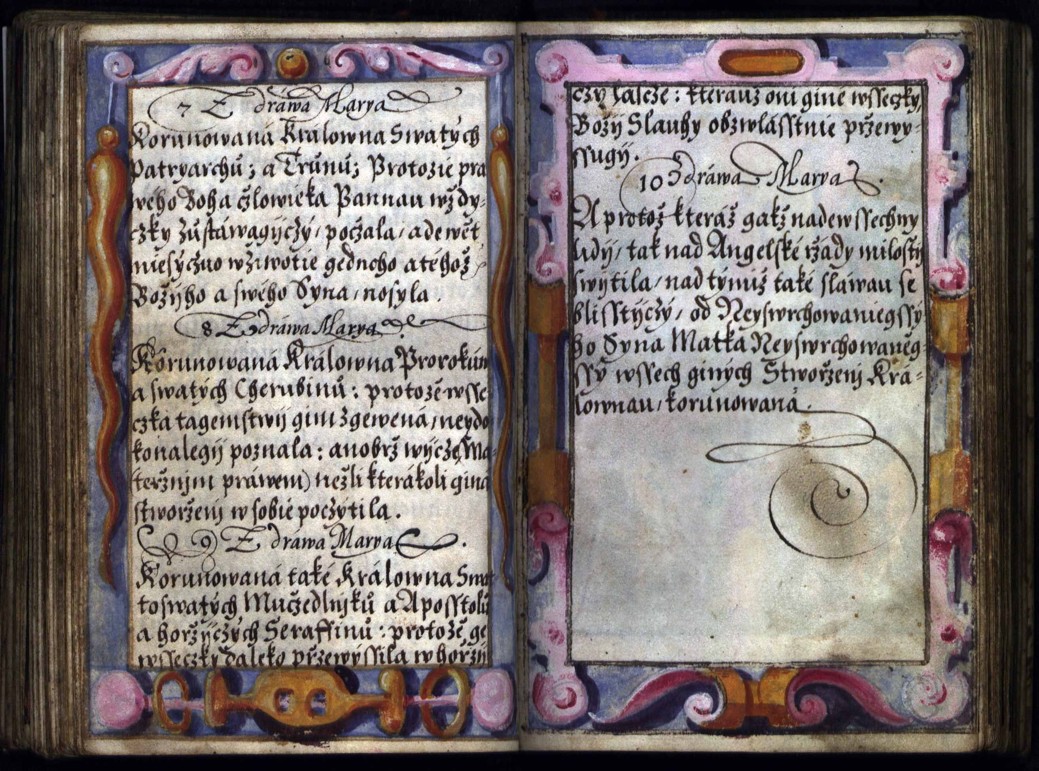 7 Zdráwa Marya
Korunowaná Kralowna Swatých
Patryarchů; a Trůnů; Protozie pra
wého Boha čžlowieka Pannau wždy-
čzky zůstáwagýčzý, počžala, a dewět
miesýčzuo w žiwotie gednoho a téhož
Božýho a swého Syna, nosyla.
8 Zdráwa Marya
Korunowaná Králowna Prorokům
a swatých Cherubinů: protože wsse-
čzka tagemstwij gim zgewená, neydo
konalegij poznala: anobrž wýčze, Ma-
teržnjm práwem) nežli kterákoli giná
stworženj w sobie počžytila.
9 Zdráwa Marya
Korunowaná také Králowna Swa
toswatých Mučžedlnjků a Aposstolů
a horžýčzých Seraffinů: protože ge
wsseczky daleko přzewýssila w horžu
čzý lásčze: kterauž oni giné wsseczky
Božý Slauhy obzwlásstnie přzewy-
ssugij.
10 Zdráwa Marya
A protož kteráž gakž nadewssechny
lidý, tak nad Angelské ržády milostý
swýtila, nad týmiž také sláwau se
blisstýczý, od Neyswrchowaniegssý
ho Syna Matka Neyswrchowaněg-
ssý wssech giných Stworženj Krá-
lownau, korunowaná.